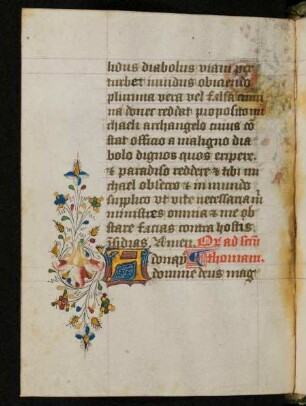 lidus diabolus viam per
turbet mundus obiciendo
plurima vera vel falsa crimi
na donec reddat proposito mi
chaeli archangelo cuius cō
stat officio a maligno dia
bolo dignos quos eripere.
& paradiso reddere & tibi mi
chael obsecro & in mundo
suplico vt vite necessaria m̄
ministres omnia & me ob
stare facias contra hostis
īsidias. Amen. Or̄ ad sc̄m
Adonay thomam.
domine deus mag